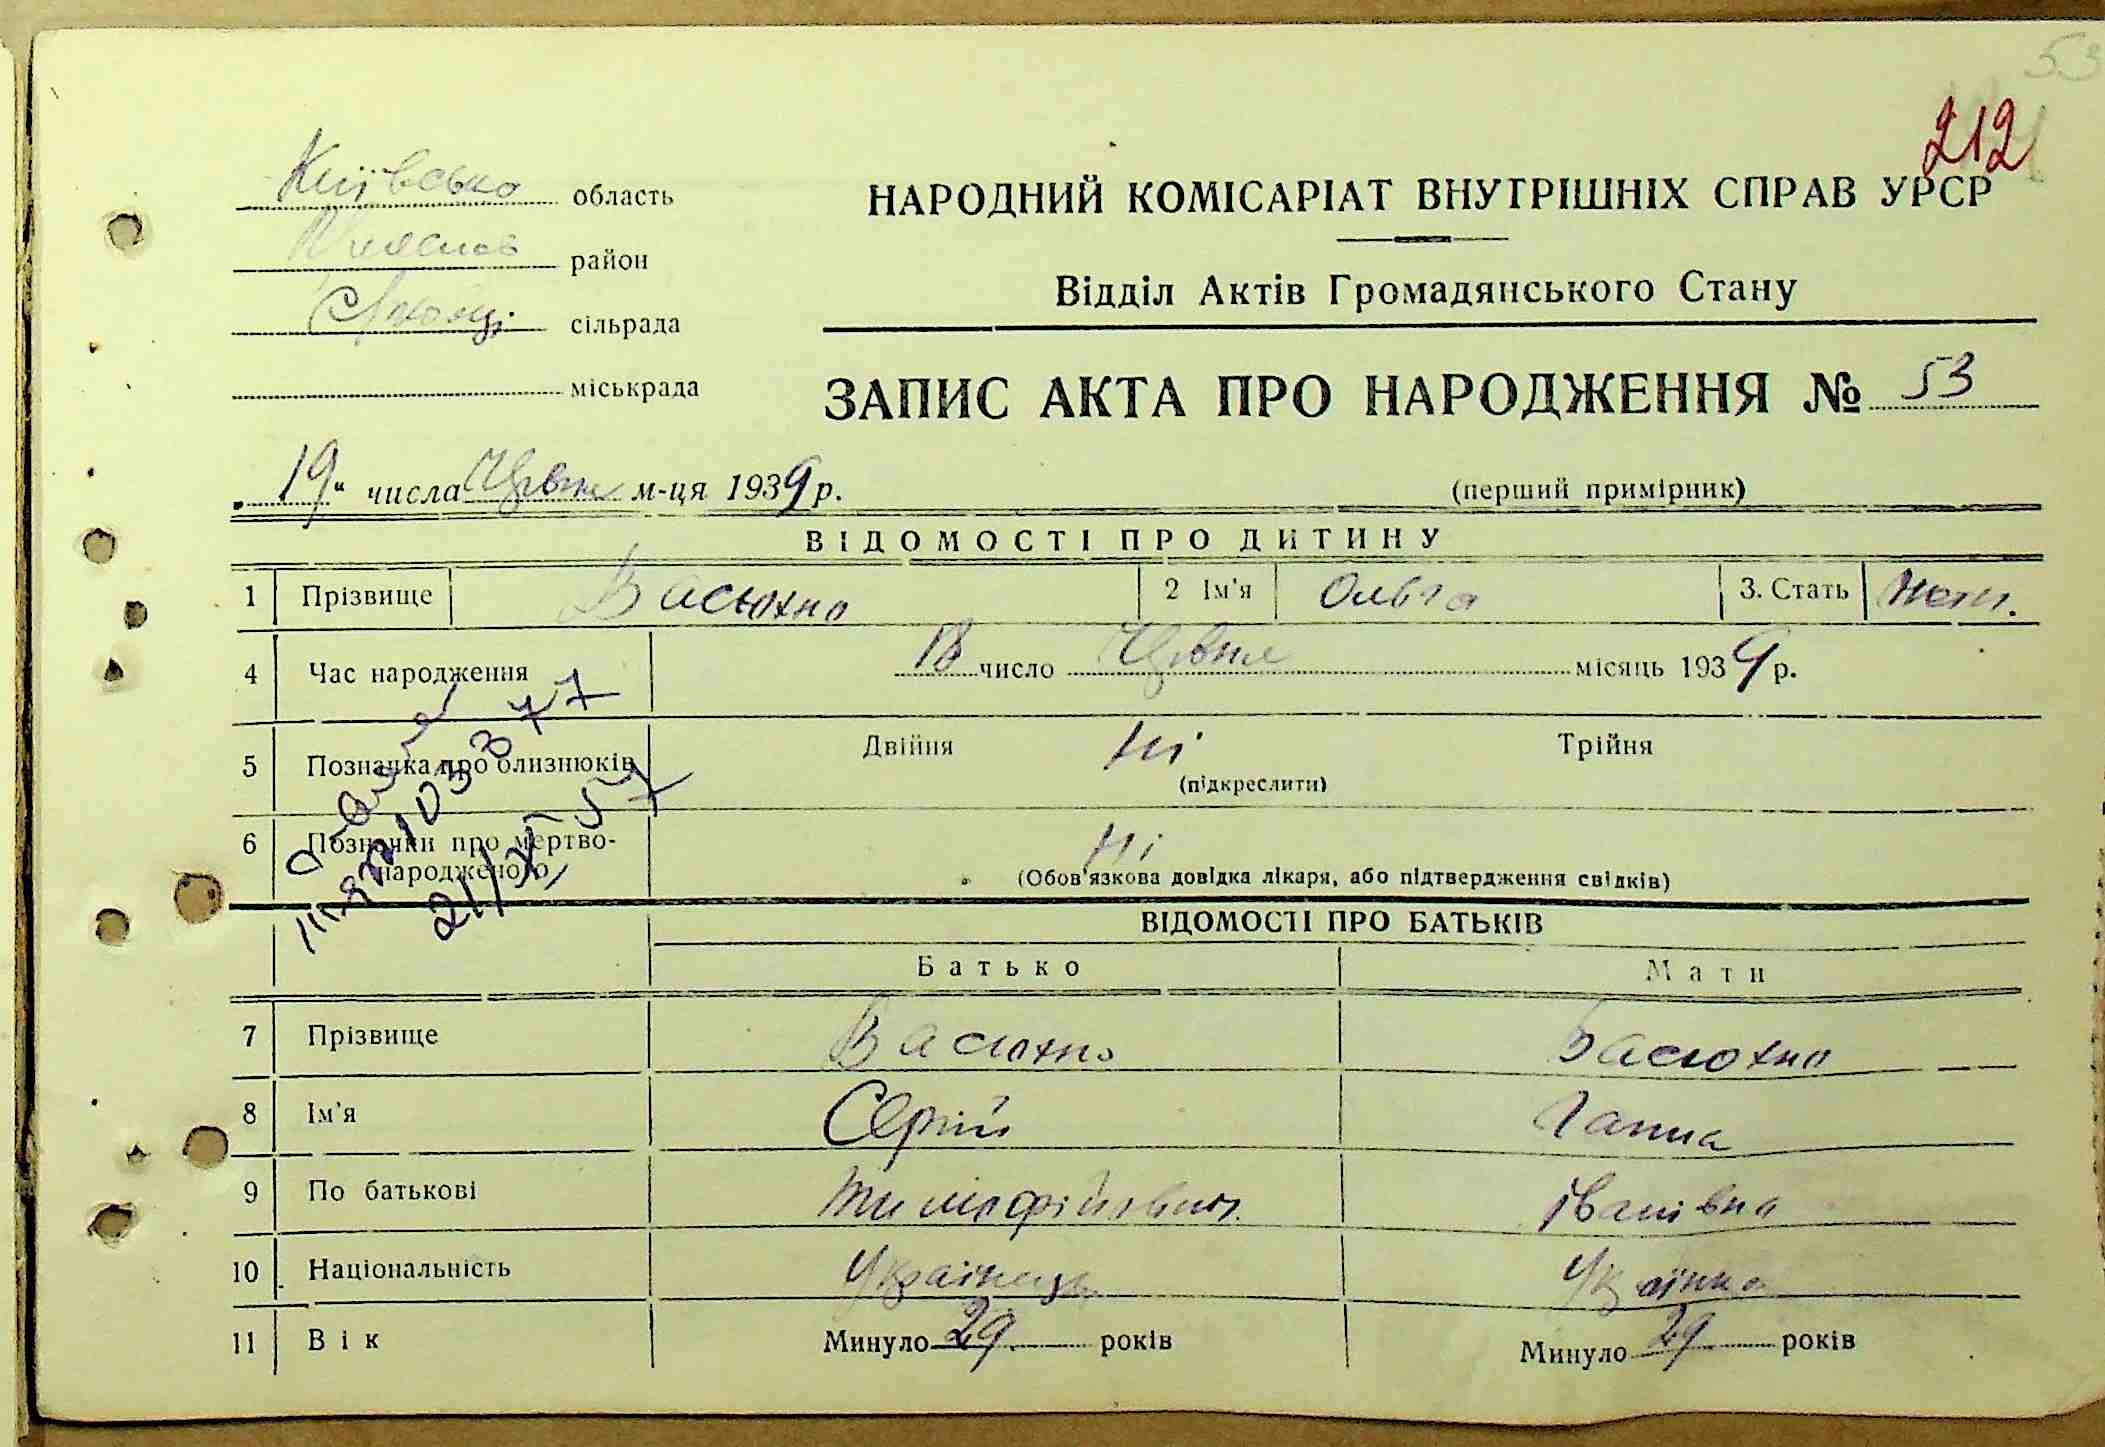 53
212
Київська область
НАРОДНИЙ КОМІСАРІАТ ВНУТРІШНІХ СПРАВ УРСР
район
Відділ Актів Громадянського Стану
сільрада
міськрада
ЗАПИС АКТА ПРО НАРОДЖЕННЯ № 53
„19“ числа Червня м-ця 1939 р.
(перший примірник)
ВІДОМОСТІ ПРО ДИТИНУ
1 Прізвище Васюхно 2 Ім'я Ольга 3. Стать жін.
4 Час народження 18 число Червня місяць 1939 р.
5 Позначка про близнюків Двійня ні Трійня
(підкреслити)
6 Позначки про мертво-
народженого ні
(Обов'язкова довідка лікаря, або підтвердження свідків)
21/XI 57
ВІДОМОСТІ ПРО БАТЬКІВ
Батько Мати
7 Прізвище Васюхно Васюхно
8 Ім'я Сергій Ганна
9 По батькові Тимофійович Іванівна
10 Національність Українець Українка
11 Вік Минуло 29 років Минуло 29 років